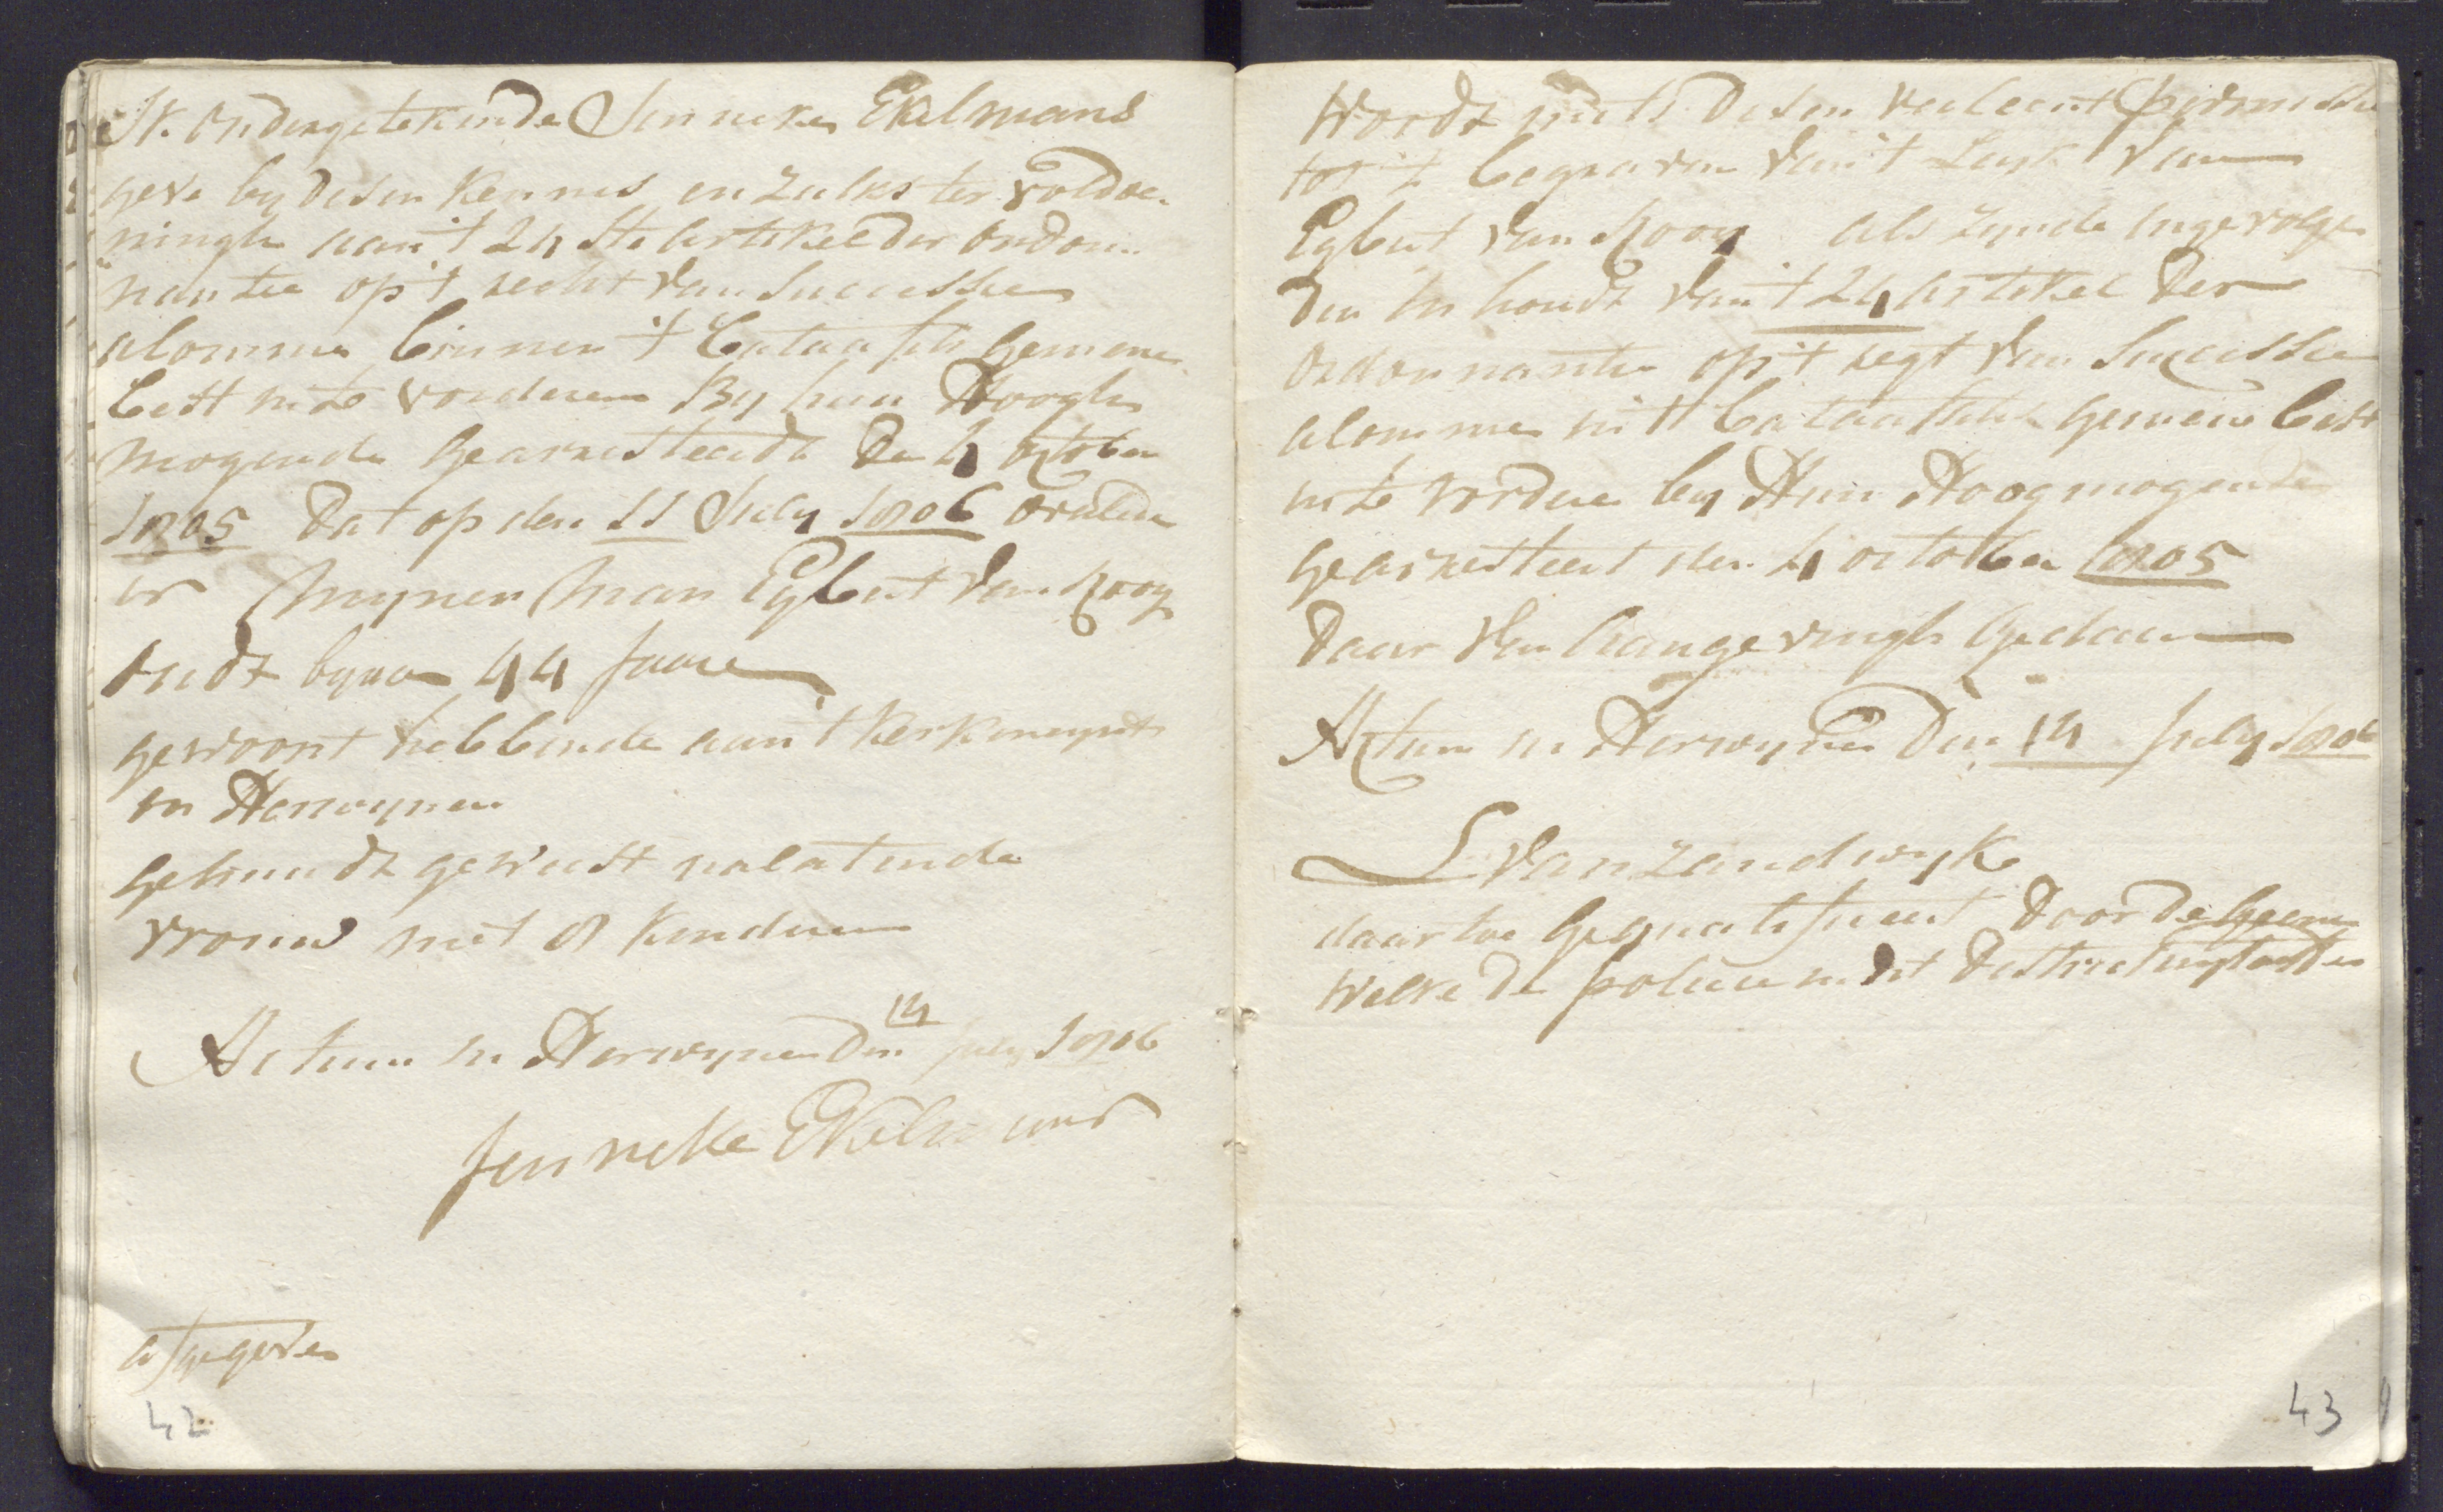 Ik ondergetekende Jenneke Ekelmans
geve by desen kennis en zulks ter voldoe-
ningh aan 't 24ste artikel der ordon-
nantie op 't recht van Successie
alomme binnen 't bataafsch gemene
best in te vorderen By hun Hoogh
mogende gearresteerdt de 4 october
1805 dat op den 11 July 1806 overleden
is mynen man Egbert van Rooy
oudt byna 44 Jaare
gewoont hebbende aan 't kerkeneynde
in Herwynen
getrouwdt geweest nalatende
vrouw met 8 kinderen
Actum in Herwynen den 14 July 1806
Jenneke Ekelmans
afgegeven
42
Wordt mits desen verleent permissie
tot 't begraven van 't Lyk van
Egbert van Rooy als zynde ingevolge
den inhoudt van 't 24 artikel der
ordonnantie op 't regt van Successie
alomme in 't bataafsche gemene best
in te vordere by Hun Hoogmogende
gearresteert den 4 october 1805
daar van aangevingh gedaan
Actum in Herwynen den 14 July 1806
L van Zandwyk
daartoe gequalificeert door de geene
welke de policie in dit district
43